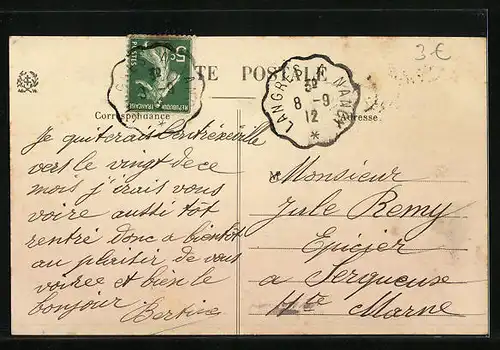 CARTE POSTALE
3€
5
POSTES
REPUBLIQUE FRANÇAISE
LANGRES À NANCY
3º
8 - 9
12
*
Correspondance
Adresse
Je quiterais Contrexeville
vers le vingt de ce
mois j'irais vous
voire aussi tôt
rentré donc a bientôt
au plaisir de vous
voiree et bien le
bonjour
Bertine
Monsieur
Jule Remy
Epicier
a Serqueuse
Hte Marne